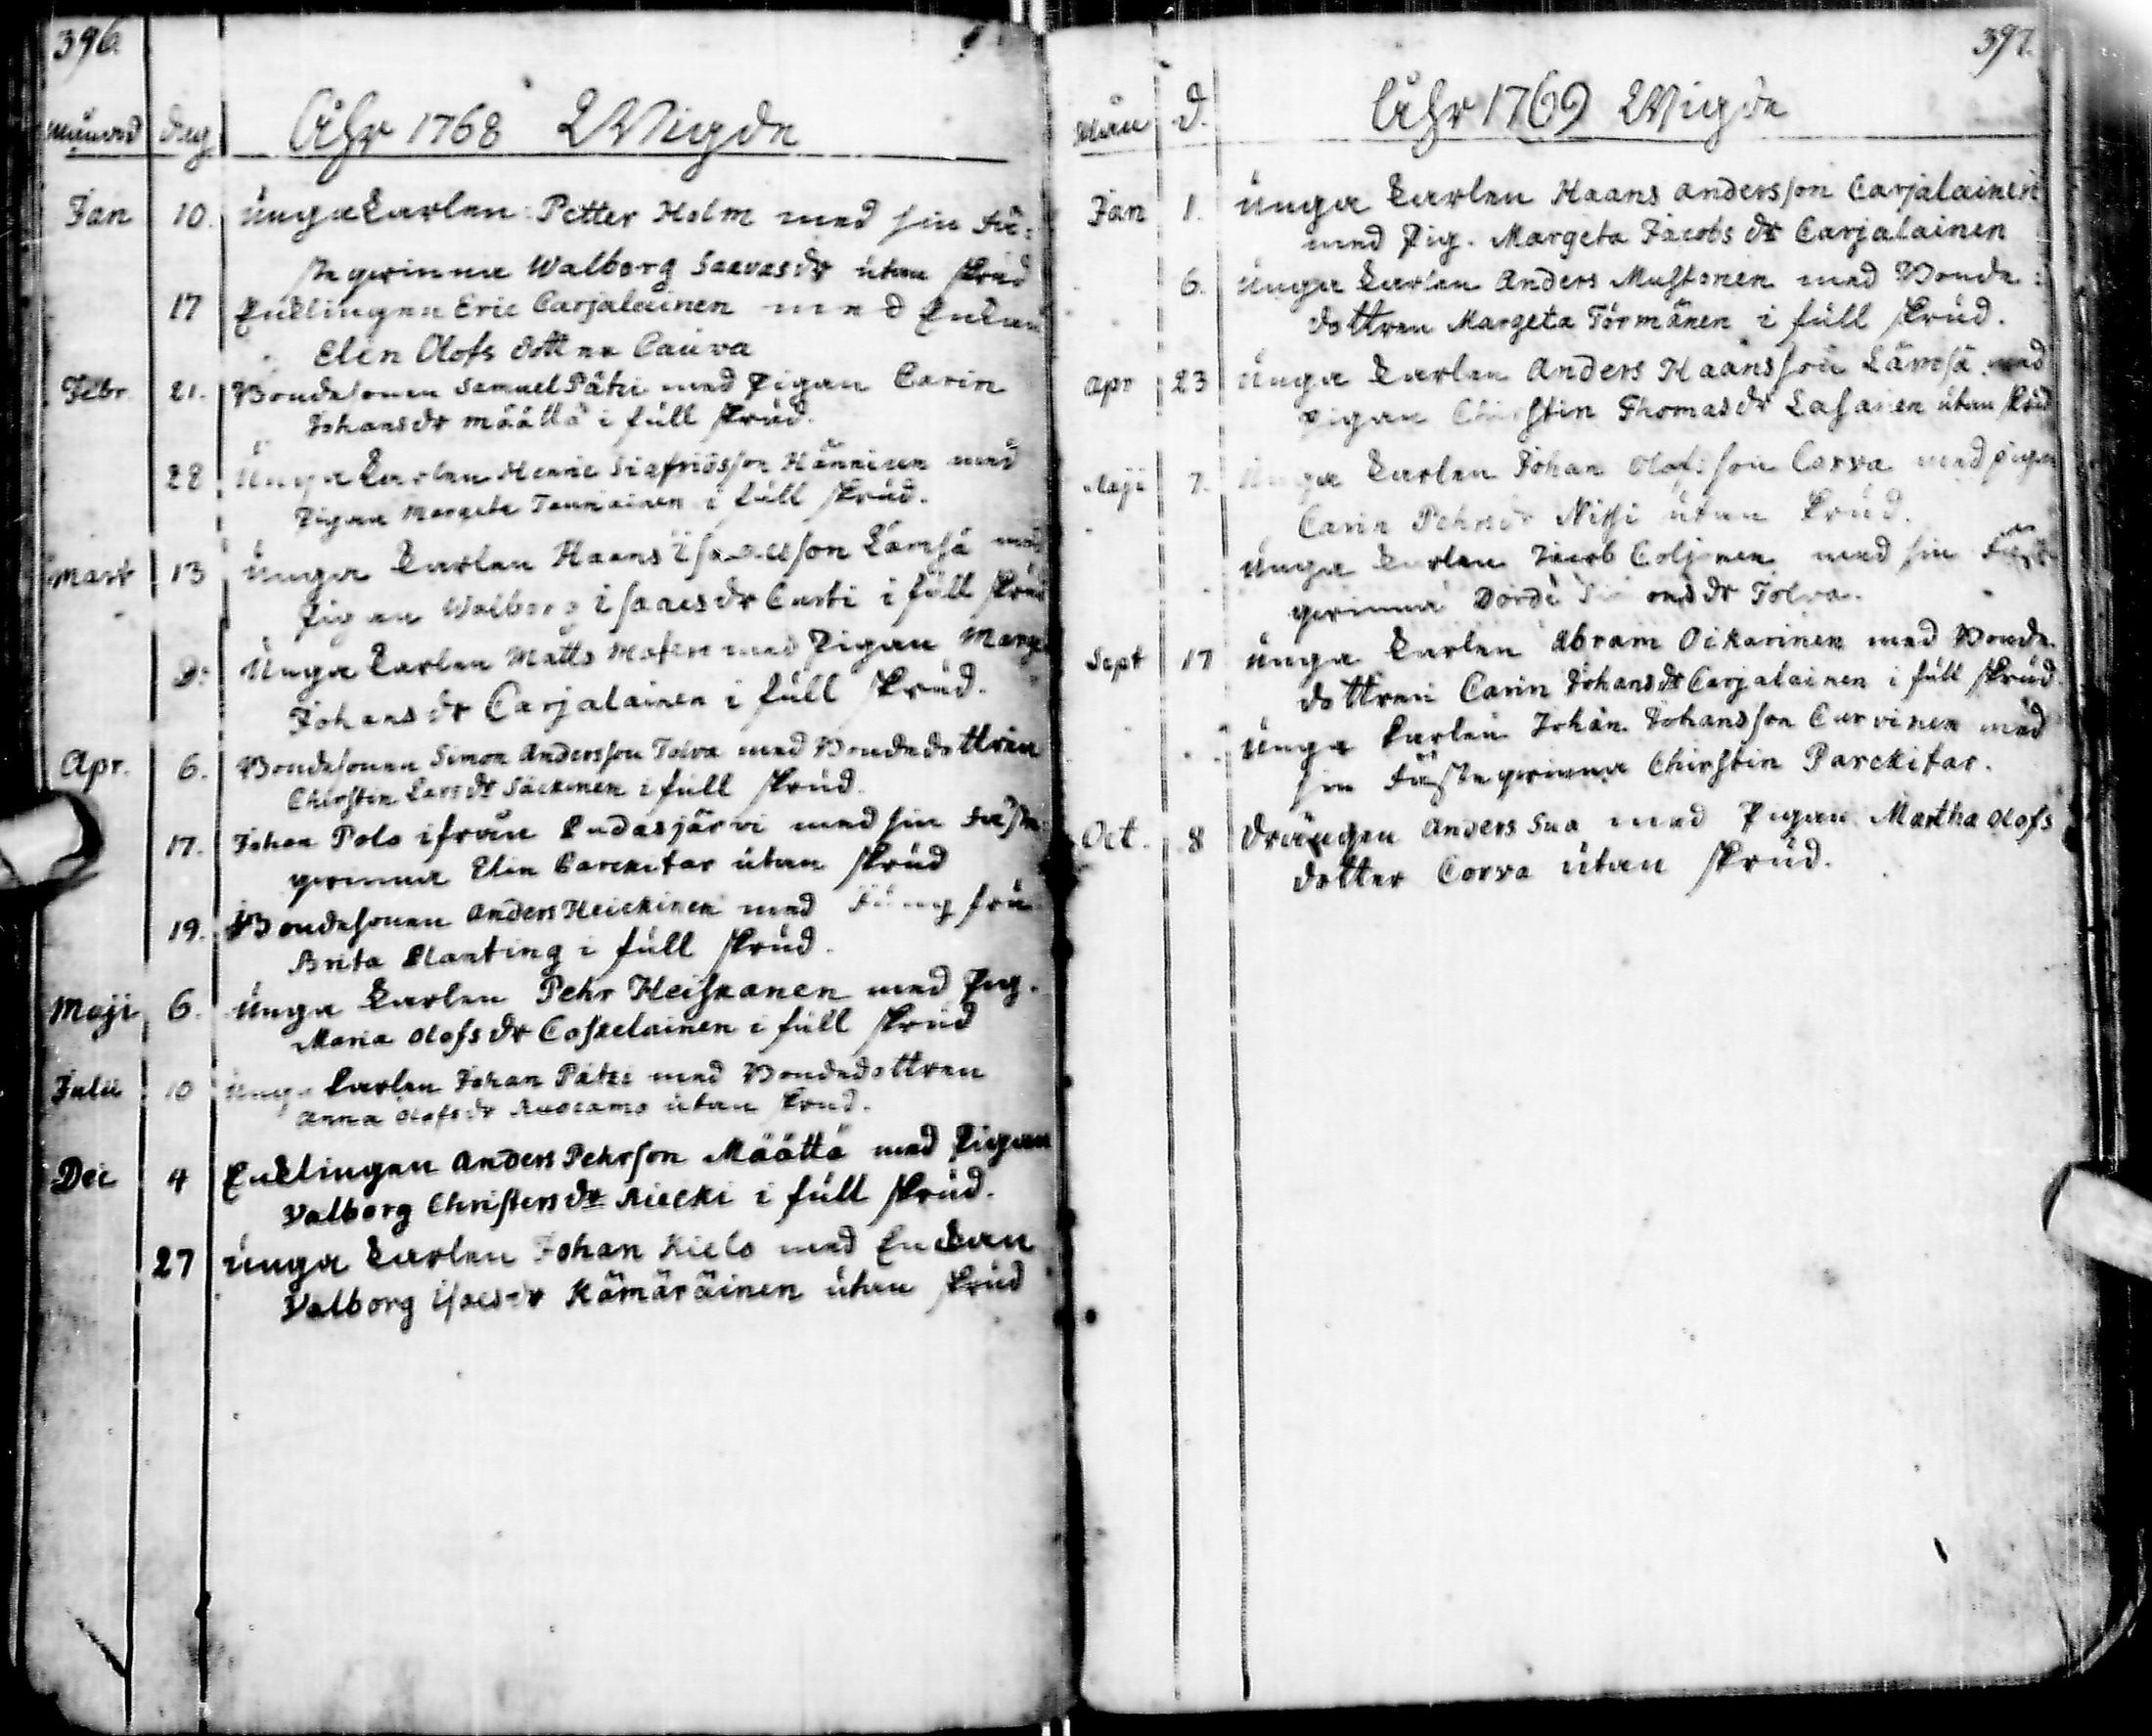 396.
Månad dag Åhr 1768 Wigde
Jan 10. Unga Karlen Petter Holm med sin Fä:
stegvinna Walborg Saevas dr utan skrud
17 Enklingen Eric Carjalainen med Enkan
Elin Olofs dotter Cauva
Febr. 21. Bondesonen Samuel Pätzi med Pigan Carin
Johans dr Määttä i full skrud.
22 Unga Karlen Henric Siegfridsson Hänninen med
Pigan Margeta Tauriainen i full skrud.
Mart 13 Unga Karlen Haans Isaacsson Lämsä med
Pigan Walborg Isaacs dr Curti i full skrud
D: Unga Karlen Matts Mosen med Pigan Marg
Johans dr Carjalainen i full skrud.
Apr. 6. Bondesonen Simon Andersson Tolva med Bondedottren
Chirstin Lars dr Säckinen i full skrud.
17. Johan Polo ifrån Pudasjärvi med sin Fäste
gvinna Elin Parckitar utan skrud
19. Bondesonen Anders Heickinen med Jungfru
Brita Planting i full skrud.
Maji 6. Unga Karlen Pehr Heiskanen med Pig.
Maria Olofs dr Coskelainen i full skrud
Julii 10 Unga Karlen Johan Pätzi med Bondedottren
Anna Olofs dr utan skrud.
Dec 4 Enklingen Anders Pehrson Määttä med Pigan
Valborg Christers dr Riecki i full skrud.
27 Unga Karlen Johan Kielo med Enckan
Valborg Isacs dr Kämäräinen utan skrud
397.
Mån d. Åhr 1769 Wigde
Jan 1. Unga Karlen Haans Andersson Carjalainen
med Pig. Margeta Jacobs dr Carjalainen
6. Unga Karlen Anders Mustonen med Bonde:
dottren Margeta Törmänen i full skrud.
Apr 23 Unga Karlen Anders Haansson Lämsä med
Pigan Chirstin Thomas dr Lasanen utan skrud
Maji 7. Unga Karlen Johan Olofsson Corva med pigan
Carin Pehrs dr Nissi utan skrud.
Unga Karlen Jacob Coljonen med sin Fäste
gvinna Dordi dr Tolva.
Sept 17 Unga Karlen Abram Oikarinen med Bonde
dottren Carin Johans dr Carjalainen i full skrud.
Unga Karlen Johan Johansson Curvinen med
sin Fästegvinna Chirstin Parckitar.
Oct. 8 Drängen Anders Sua med Pigan Martha Olofs
dotter Corva utan skrud.